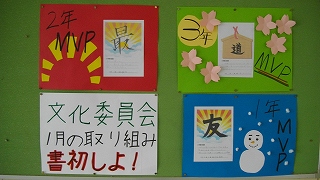 2年
MVP
最
3年
道
MVP
文化委員会
1月の取り組み
書初しよ！
友
1年
MVP